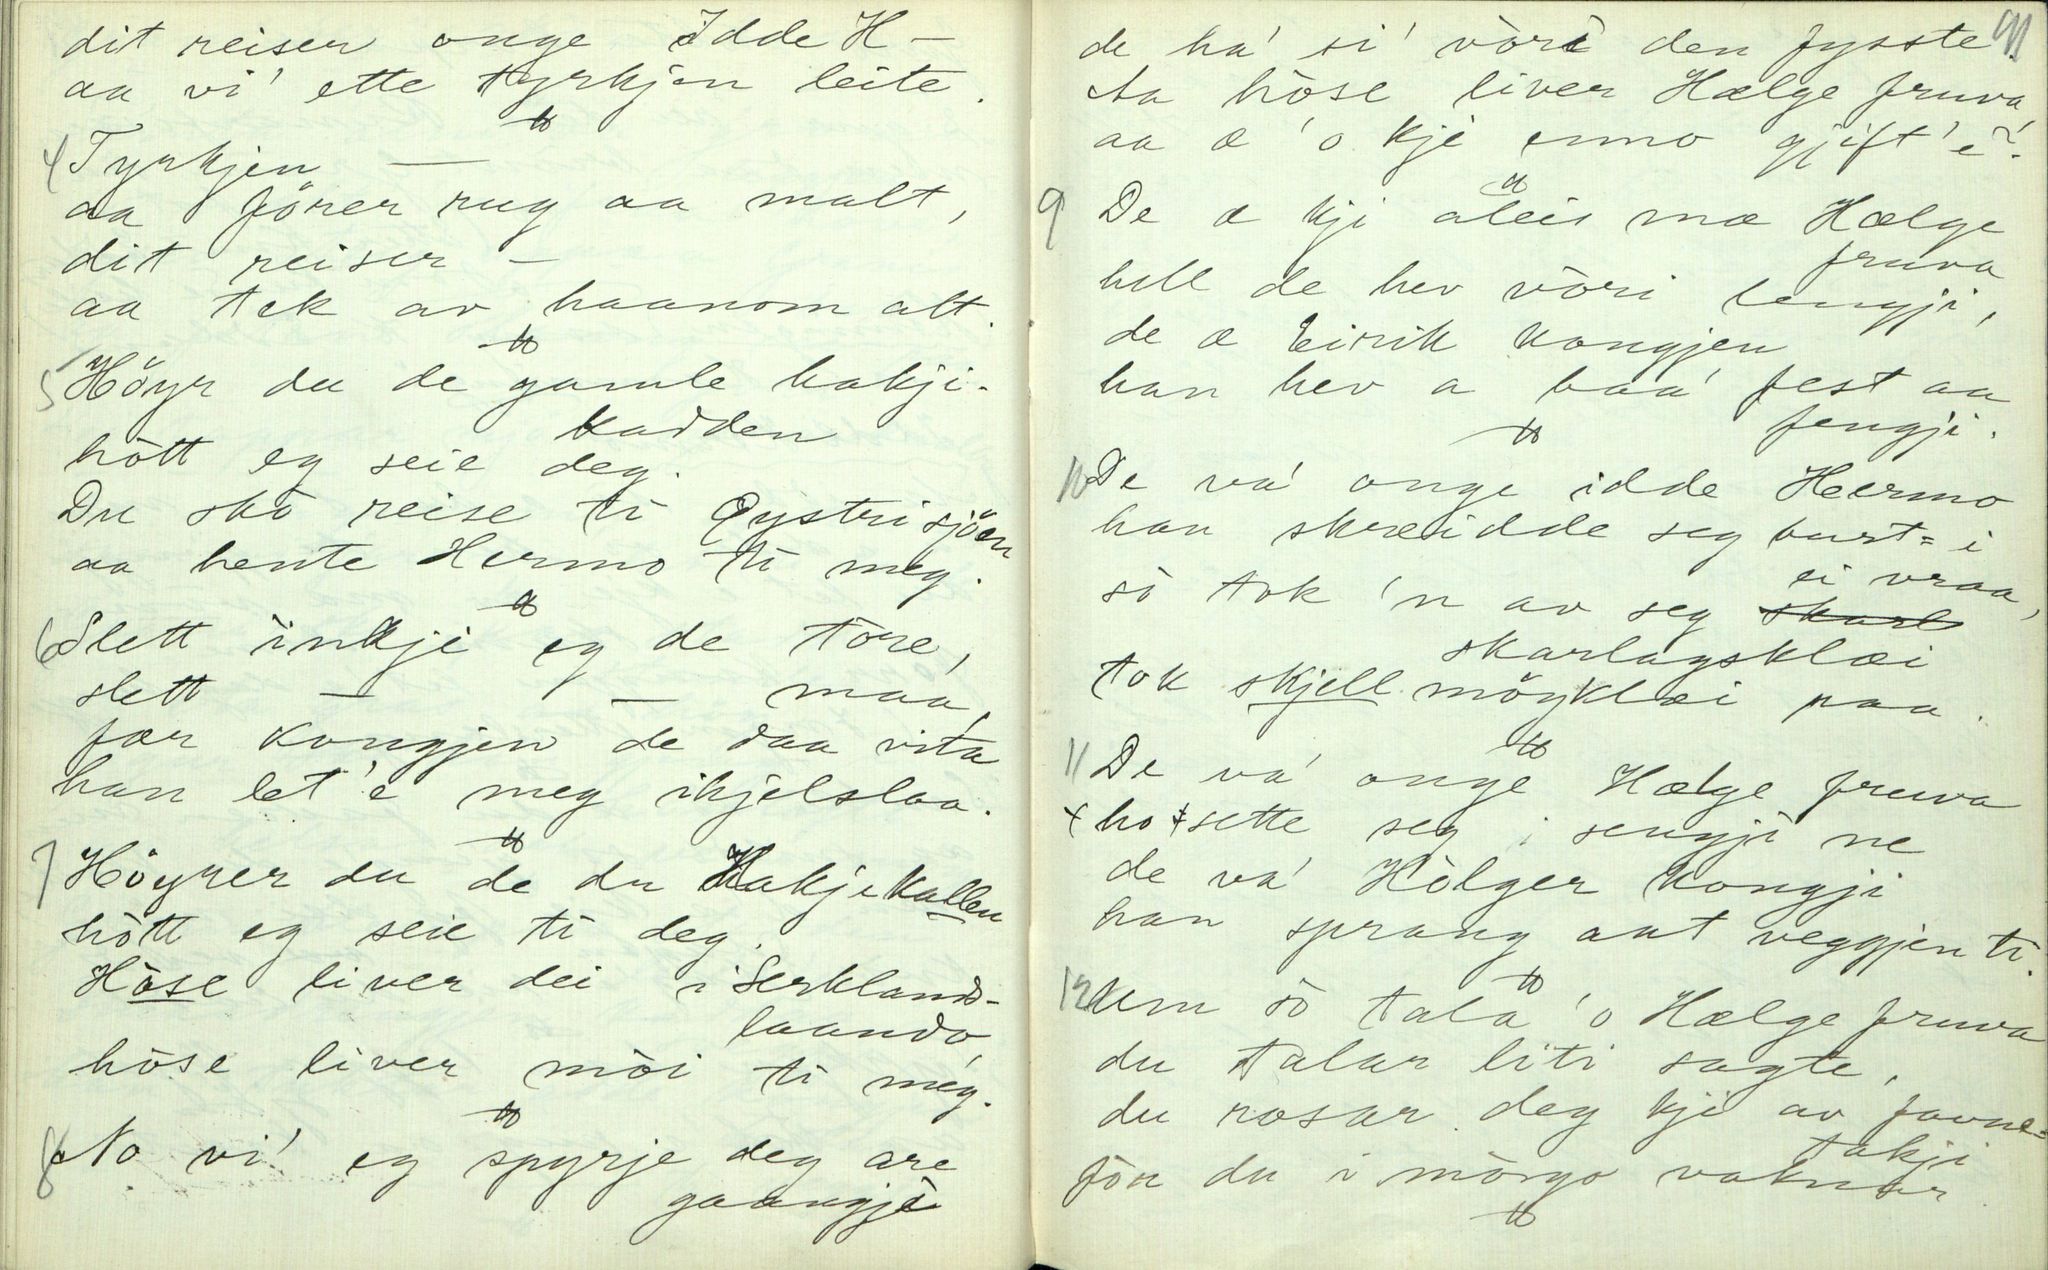 dit reiser onge Idde H -
aa vi' ette tyrkjen leite.
4 Tyrkjen —
aa förer rug aa malt,
dit reiser -
aa tek av haanom alt.
5 Höyr du de gamle hakji-
kadden
hòtt eg seie deg.
Du skò reise ti Øystrisjöen
aa hente Hermo ti meg.
6 Slett inkji eg de tore,
slett — — maa,
fær kongjen de daa vita
han let'e meg ikjelslaa.
7 Höyrer du de du Hakjekallen
hòtt eg seie ti deg.
Hòse liver dei i Serklands-
laando,
hòse liver mòi ti meg.
8 No vi' eg spyrje deg are
gaangji
91
de ha' si' vòri den fysste
Aa hòse liver Hælge fruva,
aa æ 'o kje enno gjift'e?
9 De æ kji aleis mæ Hælge
fruva
hell de hev vòri lengji,
de æ Eirik kongjen
han hev a baa' fest aa
fengji.
10 De va' onge idde Hermo
han skreidde seg burt = i
ei vraa,
sò tok 'n av seg skarl
skarlagsklæi
tok skjell möyklæi paa.
11 De va' onge Hælge fruva
+ ho + sette seg i sengji ne
de va' Hòlger kongji
han sprang aat veggjen ti.
12 Um sò tala 'o Hælge fruva
du talar liti sagte,
du rosar deg kji av favne=
takji
fòn du i mòrgo vaknar